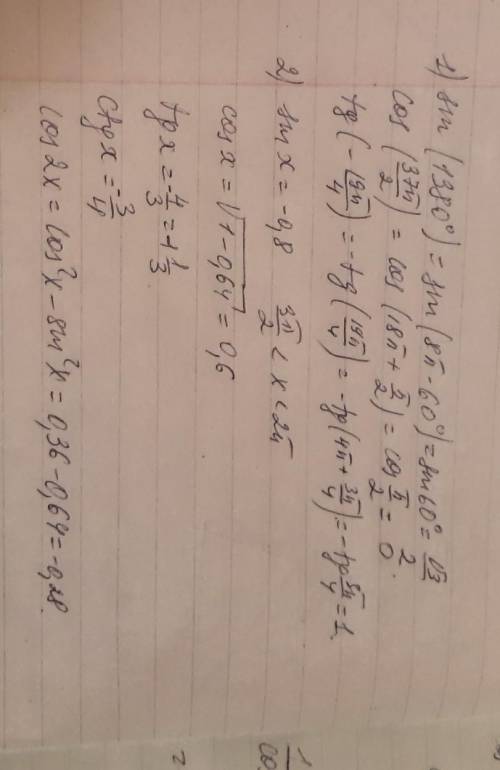 1) sin (1380°) = sin (8π - 60°) = sin 60° = √3/2
cos (37π/2) = cos (18π + π/2) = cos π/2 = 0.
tg (-19π/4) = -tg (19π/4) = -tg (4π + 3π/4) = -tg 3π/4 = 1.
2) sin x = -0,8 3π/2 < x < 2π
cos x = √1-0,64 = 0,6
tg x = -4/3 = -1 1/3
ctg x = -3/4
cos 2x = cos²x - sin²x = 0,36 - 0,64 = -0,28.